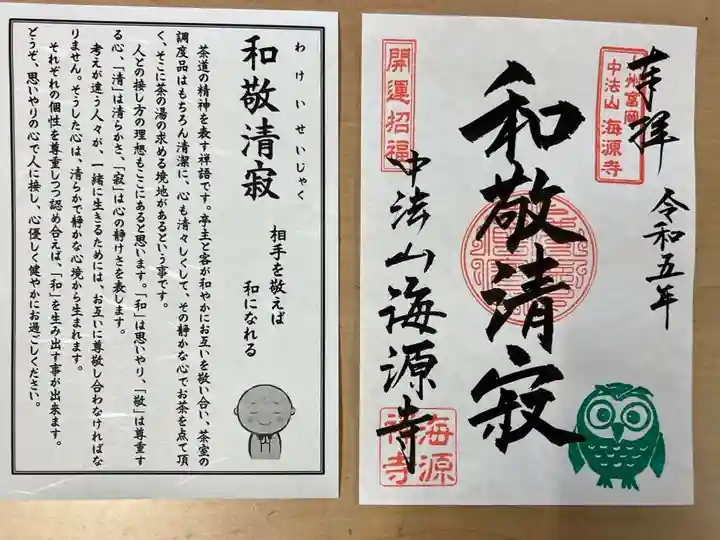 奉拝
令和五年
州富岡
中法山 海源寺
和敬清寂
開運招福
中法山海源寺
海源
禅寺
わけいせいじゃく
和敬清寂
相手を敬えば
和になれる
茶道の精神を表す禅語です。亭主と客が和やかにお互いを敬い合い、茶室の
調度品はもちろん清潔に、心も清々しくして、その静かな心でお茶を点て頂
く、そこに茶の湯の求める境地があるという事です。
人との接し方の理想もここにあると思います。「和」は思いやり、「敬」は尊重す
る心、「清」は清らかさ、「寂」は心の静けさを表します。
考えが違う人々が、一緒に生きるためには、お互いに尊敬し合わなければな
りません。そうした心は、清らかで静かな心境から生まれます。
それぞれの個性を尊重しつつ認め合えば、「和」を生み出す事が出来ます。
どうぞ、思いやりの心で人に接し、心優しく健やかにお過ごしください。